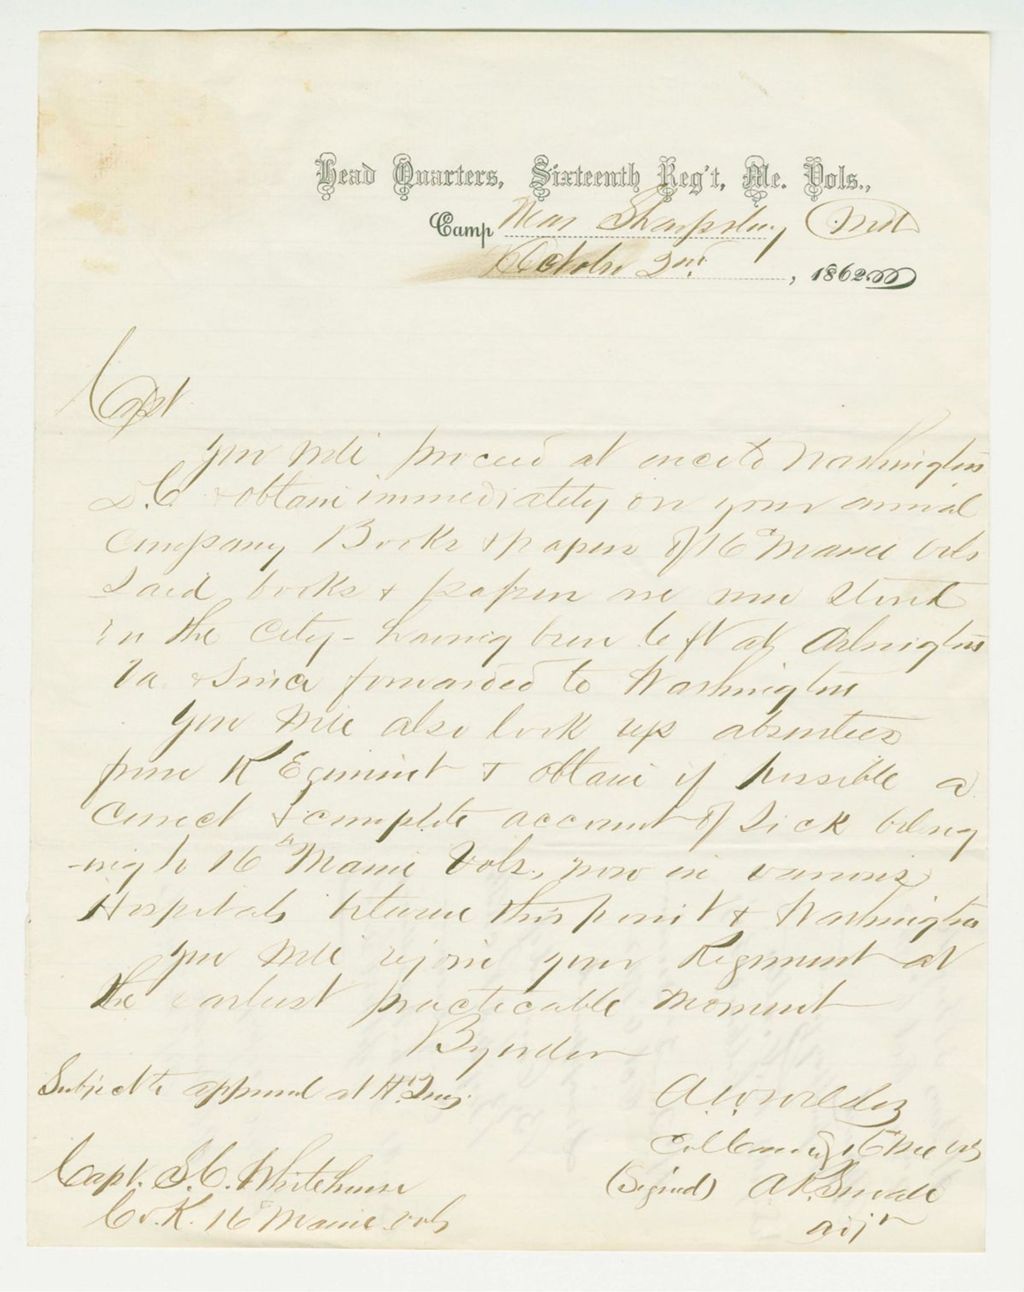 Head Quarters, Sixteenth Reg't, Me. Vols.,
Camp Near Sharpsburg Md
October 2nd, 1862
Capt
You will proceed at once to Washington
D.C. & obtain immediately on your arrival
Company Books & papers of 16th Maine Vols
Said books & papers are now stored
in the City - having been left at Arlington
Va. & Since forwarded to Washington
You will also look up absentees
from Regiment & obtain if possible a
Correct & complete account of Sick belong
-ing to 16th Maine Vols., now in various
Hospitals between this point & Washington
You will rejoin your Regiment at
the earliest practicable moment
By order
Subject to approval at Hd Qrs
A. W. Wilder
Col Comdg 16th Me Vols
Capt. S. C. Whitehouse
(Signed) A. R. Small
Co. K. 16th Maine Vols
Adjt